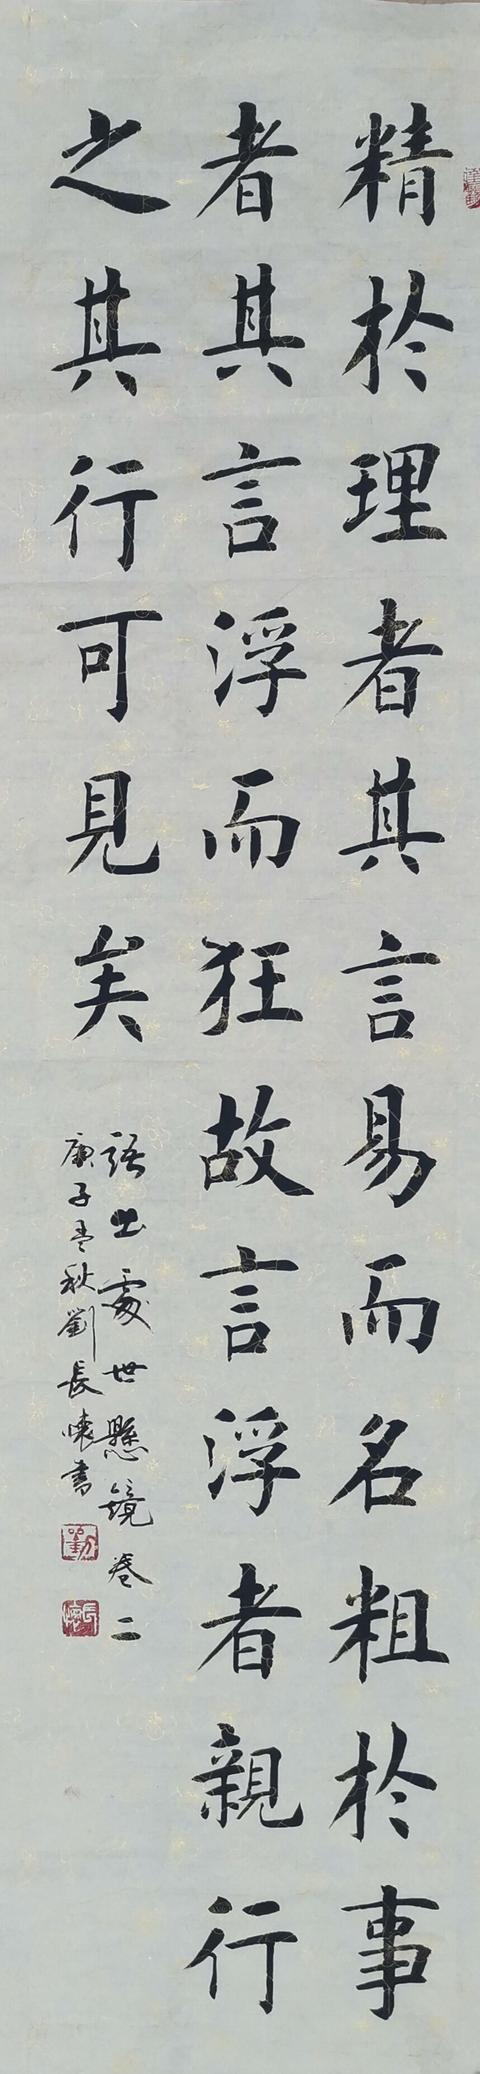 精於理者其言易而名粗於事
者其言浮而狂故言浮者親行
之其行可見矣
語出處世懸鏡卷二
庚子孟秋劉長懷書